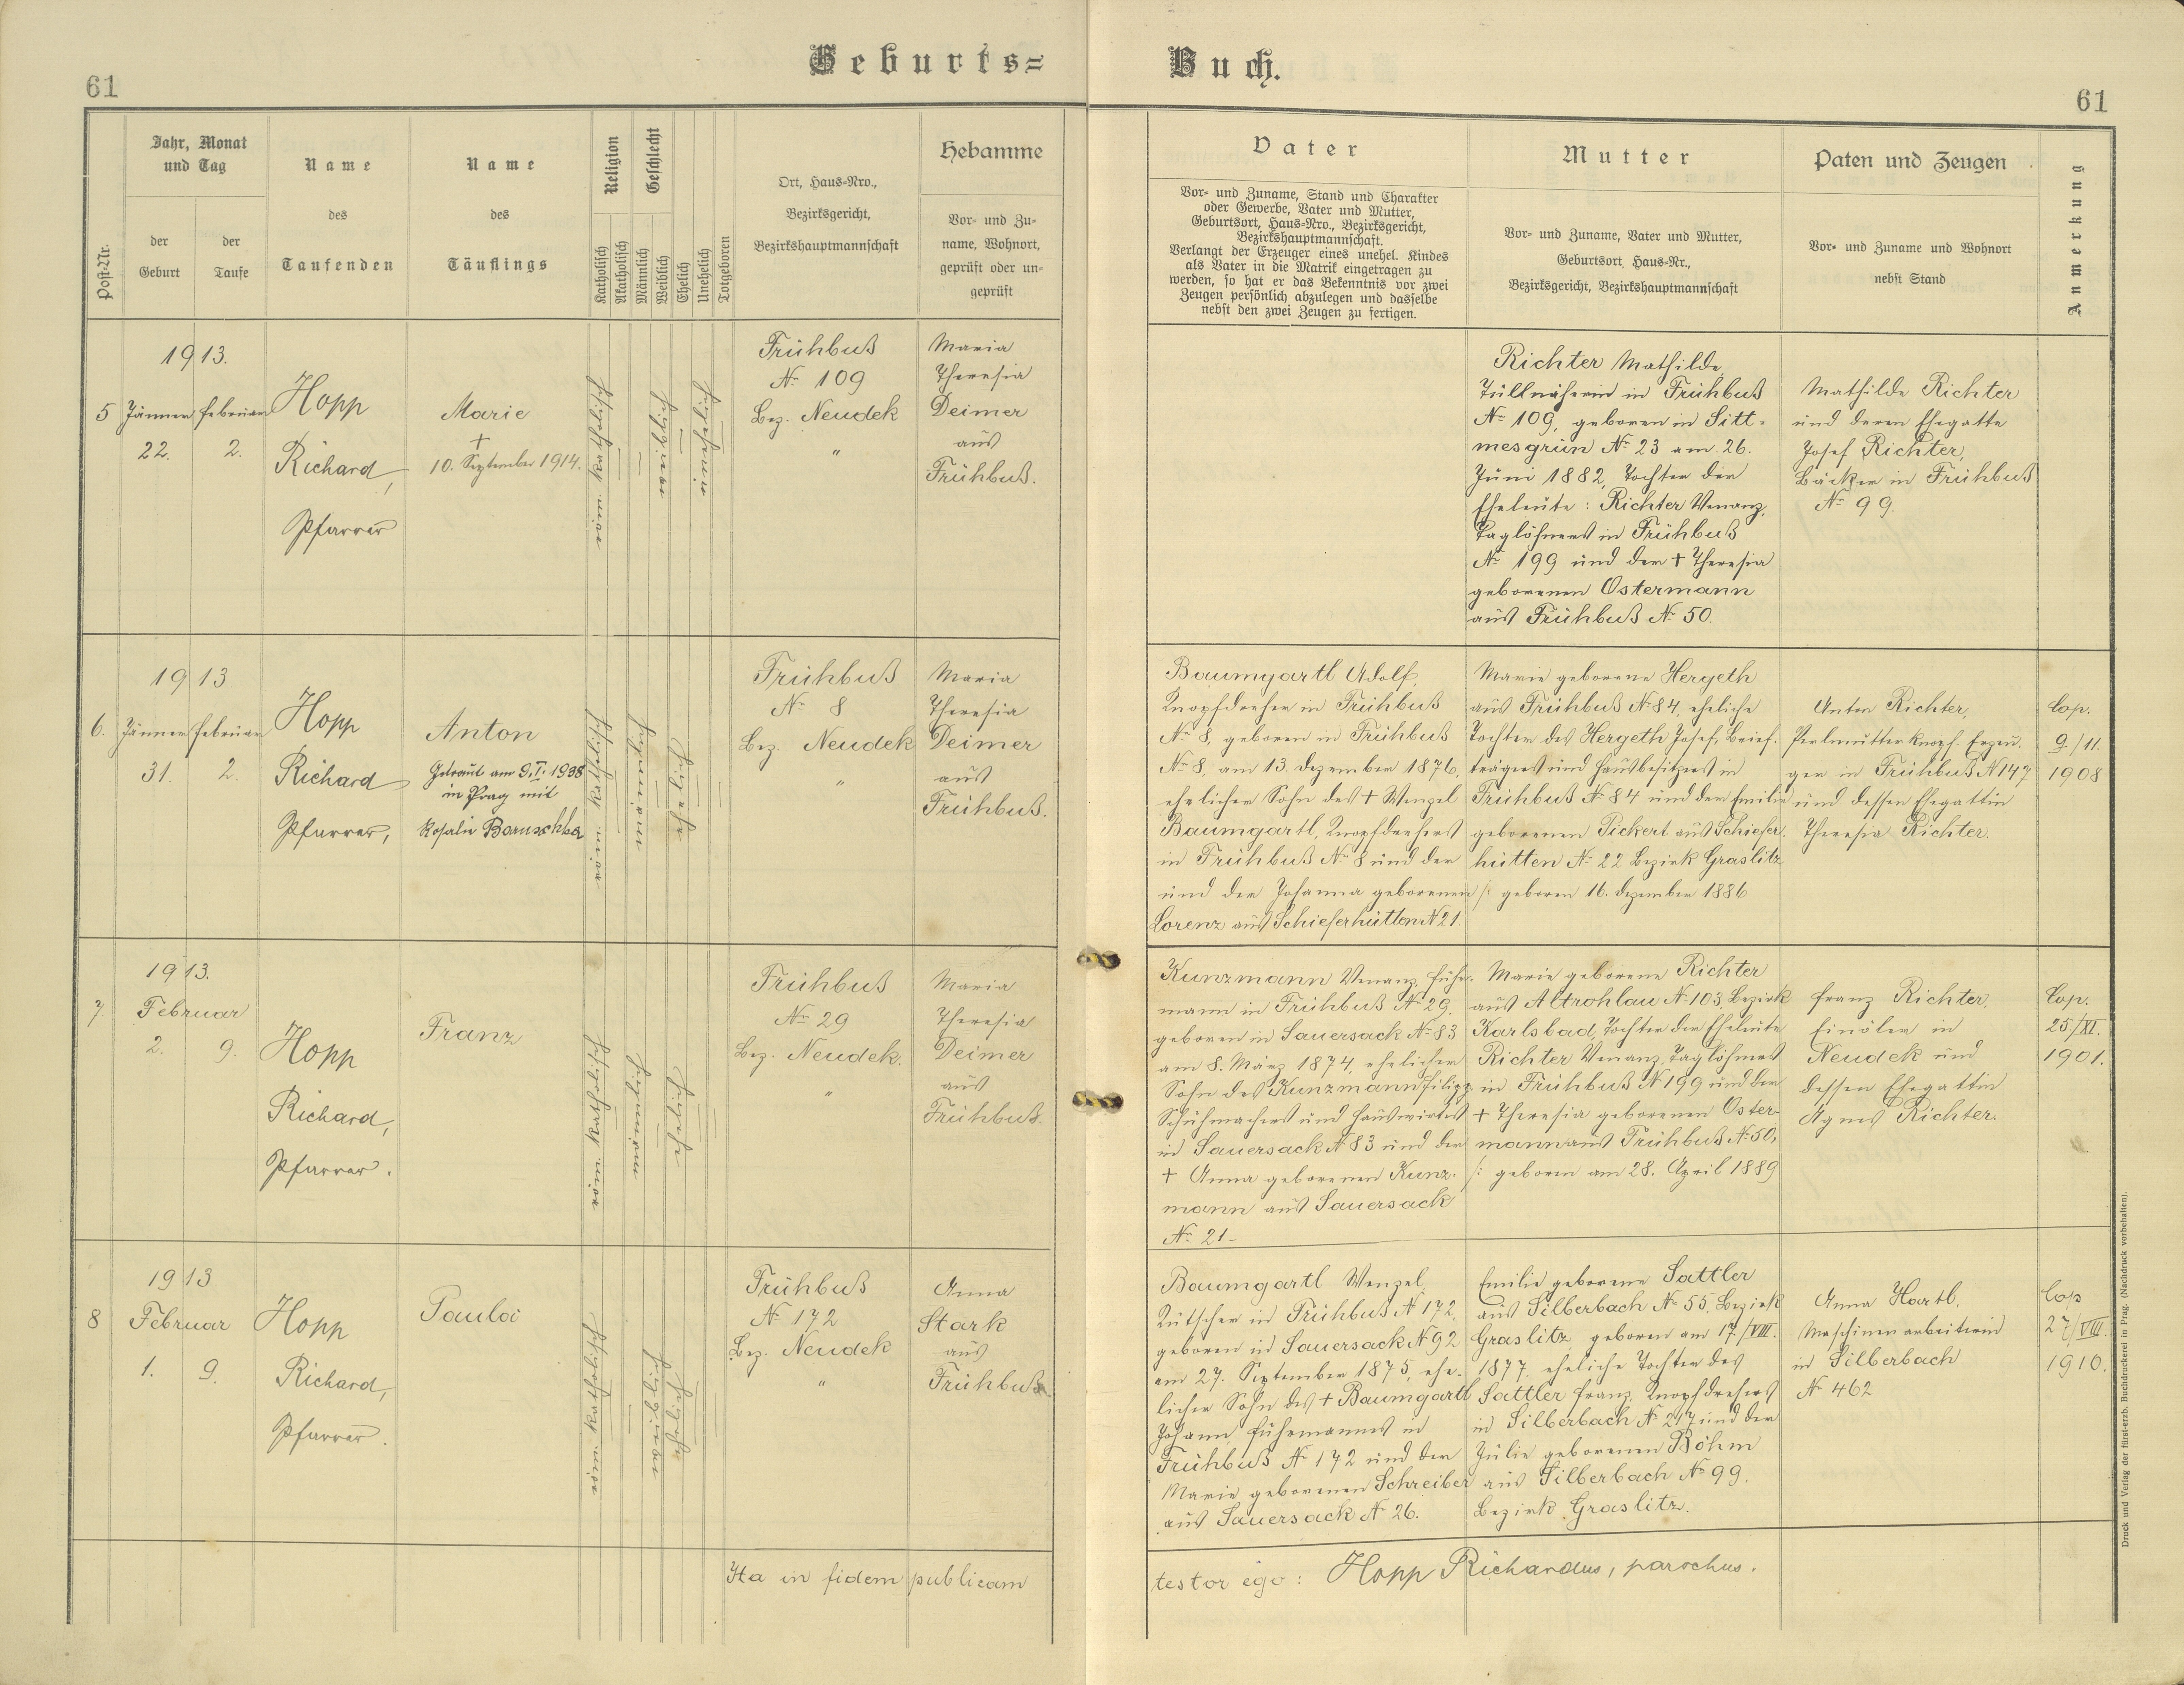 61
Geburts=
Buch.
61
Post-Nr.
Jahr, Monat
und Tag
der
Geburt
der
Taufe
Name
des
Taufenden
Name
des
Täuflings
Religion
Katholisch
Akatholisch
Geschlecht
Männlich
Weiblich
Ehelich
Unehelich
Totgeboren
Ort, Haus=Nro.,
Bezirksgericht,
Bezirkshauptmannschaft
Hebamme
Vor= und Zu=
name, Wohnort,
geprüft oder un=
geprüft
Vater
Vor= und Zuname, Stand und Charakter
oder Gewerbe, Vater und Mutter,
Geburtsort, Haus=Nro., Bezirksgericht,
Bezirkshauptmannschaft.
Verlangt der Erzeuger eines unehel. Kindes
als Vater in die Matrik eingetragen zu
werden, so hat er das Bekenntnis vor zwei
Zeugen persönlich abzulegen und dasselbe
nebst den zwei Zeugen zu fertigen.
Mutter
Vor= und Zuname, Vater und Mutter,
Geburtsort, Haus=Nr.,
Bezirksgericht, Bezirkshauptmannschaft
Paten und Zeugen
Vor= und Zuname und Wohnort
nebst Stand
Anmerkung
1913.
5 Jänner Februar
22. 2.
Hopp
Richard,
Pfarrer
Marie
†
10. September 1914.
röm. katholisch
Frühbuß
N° 109
Bez. Neudek
"
Maria
Theresia
Deimer
aus
Frühbuß.
Richter Mathilde,
Tüllnäherin in Frühbuß
N° 109, geboren in Sitt=
mesgrün N° 23 am 26.
Juni 1882, Tochter der
Eheleute: Richter Venanz,
Taglöhners in Frühbuß
N° 199 und der † Theresia
geborenen Ostermann
aus Frühbuß N° 50.
Mathilde Richter
und deren Ehegatte
Josef Richter,
Bäcker in Frühbuß
N° 99.
1913
6. Jänner Februar
31. 2.
Hopp
Richard
Pfarrer,
Anton
Getraut am 9.I.1938
in Prag mit
Rosalie Boruschka
röm. katholisch
Frühbuß
N° 8
Bez. Neudek
"
Maria
Theresia
Deimer
aus
Frühbuß.
Baumgartl Adolf,
Knopfdreher in Frühbuß
N° 8, geboren in Frühbuß
N° 8, am 13. Dezember 1876,
ehelicher Sohn des † Wenzel
Baumgartl, Knopfdrehers
in Frühbuß N° 8 und der
und der Johanna geborenen
Lorenz aus Schieferhütten N° 21.
Marie geborene Hergeth
aus Frühbuß N° 84, eheliche
Tochter des Hergeth Josef, Brief=
trägers und Hausbesitzers in
Frühbuß N° 84 und der Emilie
geborenen Pickert aus Schiefer=
hütten N° 22 Bezirk Graslitz
/: geboren 16. Dezember 1886
Anton Richter,
Perlmutterknopf-Erzeu=
ger in Frühbuß N° 147
und dessen Ehegattin
Theresia Richter.
Cop.
9./11.
1908
1913.
7. Februar
2. 9.
Hopp
Richard,
Pfarrer.
Franz
röm. katholisch
Frühbuß
N° 29
Bez. Neudek.
"
Maria
Theresia
Deimer
aus
Frühbuß.
Kunzmann Venanz, Fuhr=
mann in Frühbuß N° 29,
geboren in Sauersack N° 83
am 8. März 1874, ehelicher
Sohn des Kunzmann Filipp
Schuhmachers und Hauswirtes
in Sauersack N° 83 und der
† Anna geborenen Kunz=
mann aus Sauersack
N° 21.
Marie geborene Richter
aus Altrohlau N° 103 Bezirk
Karlsbad, Tochter der Eheleute
Richter Venanz, Taglöhners
in Frühbuß N° 199 und der
† Theresia geborenen Oster=
mann aus Frühbuß N° 50,
/: geboren am 28. April 1889
Franz Richter,
Einöler in
Neudek und
dessen Ehegattin
Agnes Richter.
Cop.
25./XI.
1901.
1913
8 Februar
1. 9.
Hopp
Richard,
Pfarrer.
röm. katholisch
Frühbuß
N° 172
Bez. Neudek
"
Anna
Stark
aus
Frühbuß
Baumgartl Wenzel,
Kutscher in Frühbuß N° 172,
geboren in Sauersack N° 92
am 27. September 1875, ehe=
licher Sohn des † Baumgartl
Johann, Fuhrmannes in
Frühbuß N° 172 und der
Marie geborenen Schreiber
aus Sauersack N° 26.
Emilie geborene Sattler
aus Silberbach N° 55, Bezirk
Graslitz, geboren am 17./VIII.
1877, eheliche Tochter des
Sattler Franz, Knopfdrehers
in Silberbach N° 217 und der
Julie geborenen Böhm
aus Silberbach N° 99.
Bezirk Graslitz.
Anna Hartl,
Maschinenarbeiterin
in Silberbach
N° 462
Cop
27/VIII.
1910.
Ita in fidem publicam
testor ego: Hopp Richardus, parochus.
Druck und Verlag der fürst-erzb. Buchdruckerei in Prag. (Nachdruck vorbehalten).